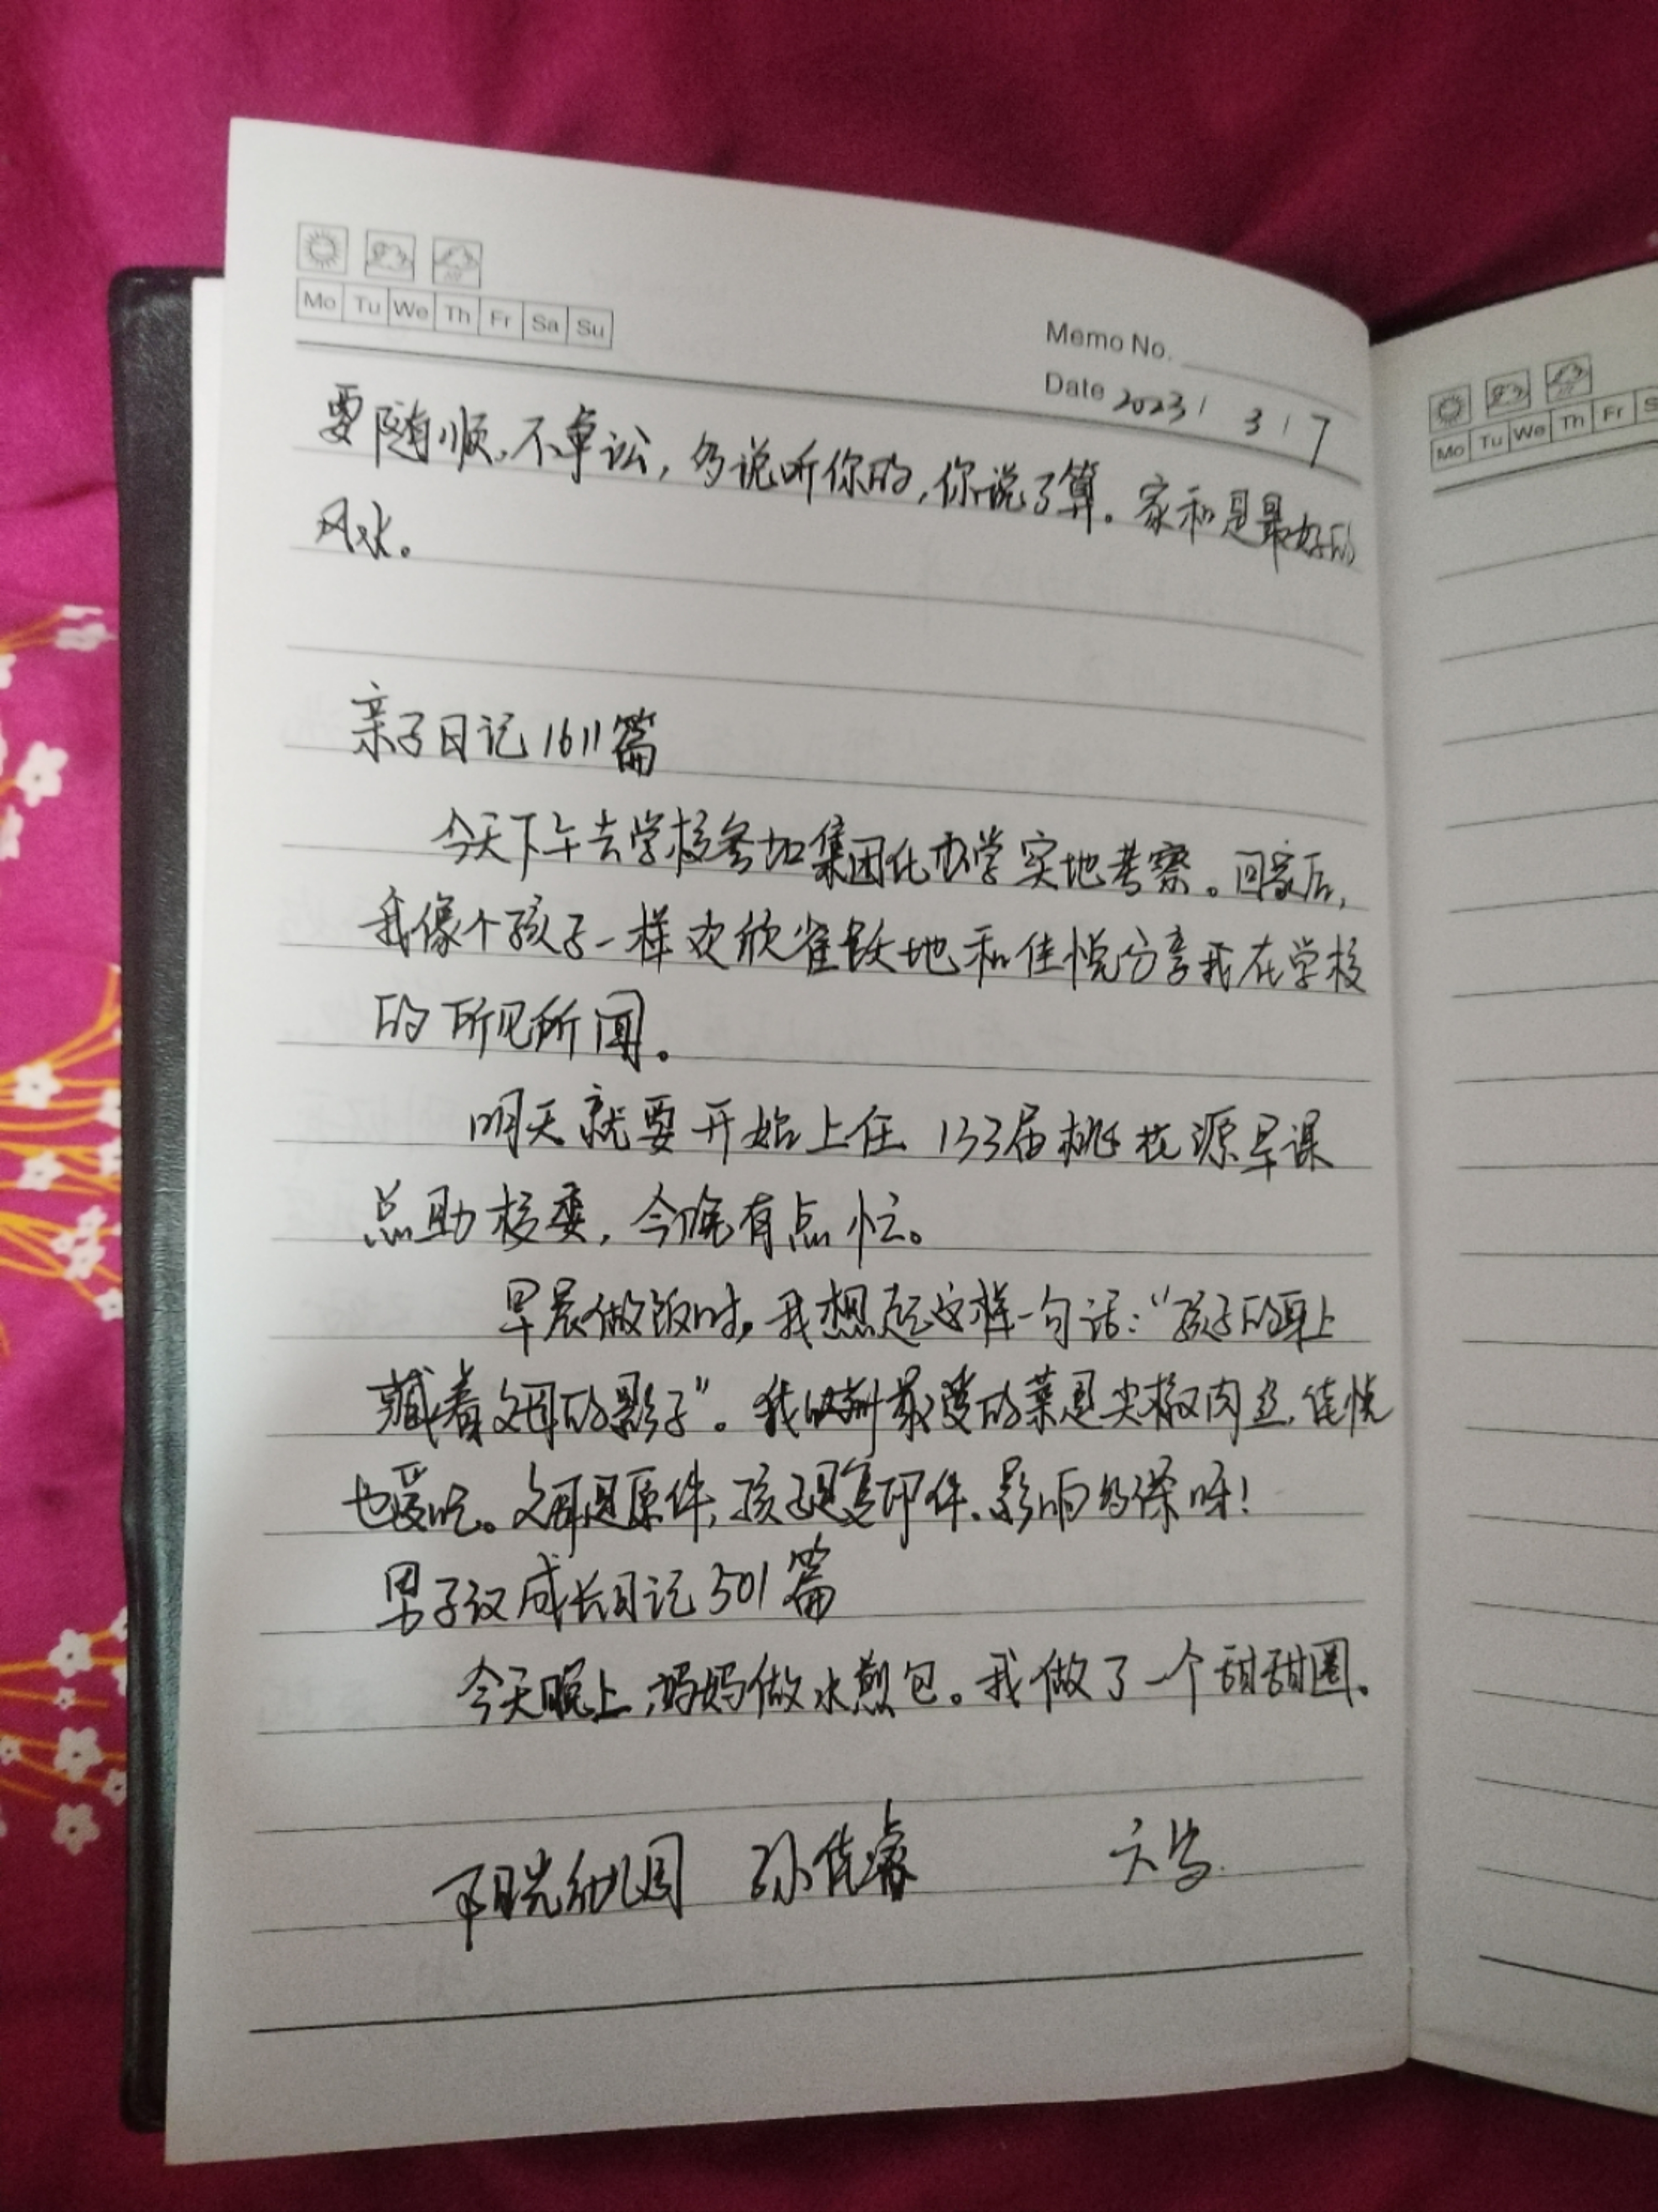 Mo Tu We Th Fr Sa Su
Memo No.
Date 2023 / 3 / 7
要随顺,不争讼,多说听你的,你说了算。家和是最好的
风水。
亲子日记1611篇
今天下午去学校参加集团化办学实地考察。回家后,
我像个孩子一样欢欣雀跃地和佳悦分享我在学校
的所见所闻。
明天就要开始上任133届桃花源早课
总助校委,今晚有点忙。
早晨做饭时,我想起这样一句话:“孩子的身上
藏着父母的影子”。我以前最爱的菜是尖椒肉丝,佳悦
也爱吃。父母是原件,孩子是复印件,影响多深呀!
男子汉成长日记501篇
今天晚上,妈妈做水煎包。我做了一个甜甜圈。
阳光幼儿园 孙佳睿
Mo Tu We Th Fr S